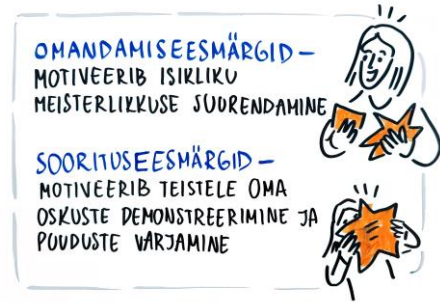 OMANDAMISEESMÄRGID –
MOTIVEERIB ISIKLIKU
MEISTERLIKKUSE SUURENDAMINE
SOORITUSEESMÄRGID –
MOTIVEERIB TEISTELE OMA
OSKUSTE DEMONSTREERIMINE JA
PUUDUSTE VARJAMINE